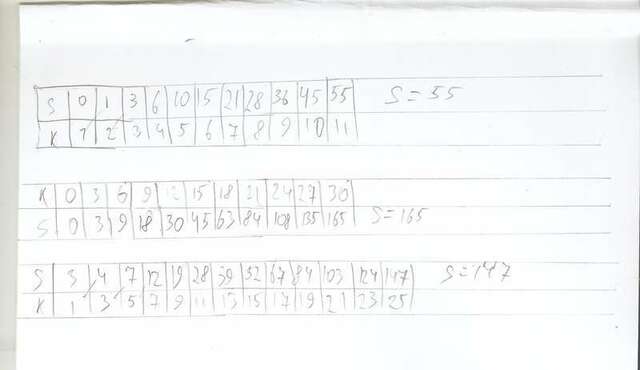 S 0 1 3 6 10 15 21 28 36 45 55 S=55
K 1 2 3 4 5 6 7 8 9 10 11
K 0 3 6 9 12 15 18 21 24 27 30
S 0 3 9 18 30 45 63 84 108 135 165 S=165
S 3 4 7 12 19 28 39 52 67 84 103 124 147 S=147
K 1 3 5 7 9 11 13 15 17 19 21 23 25